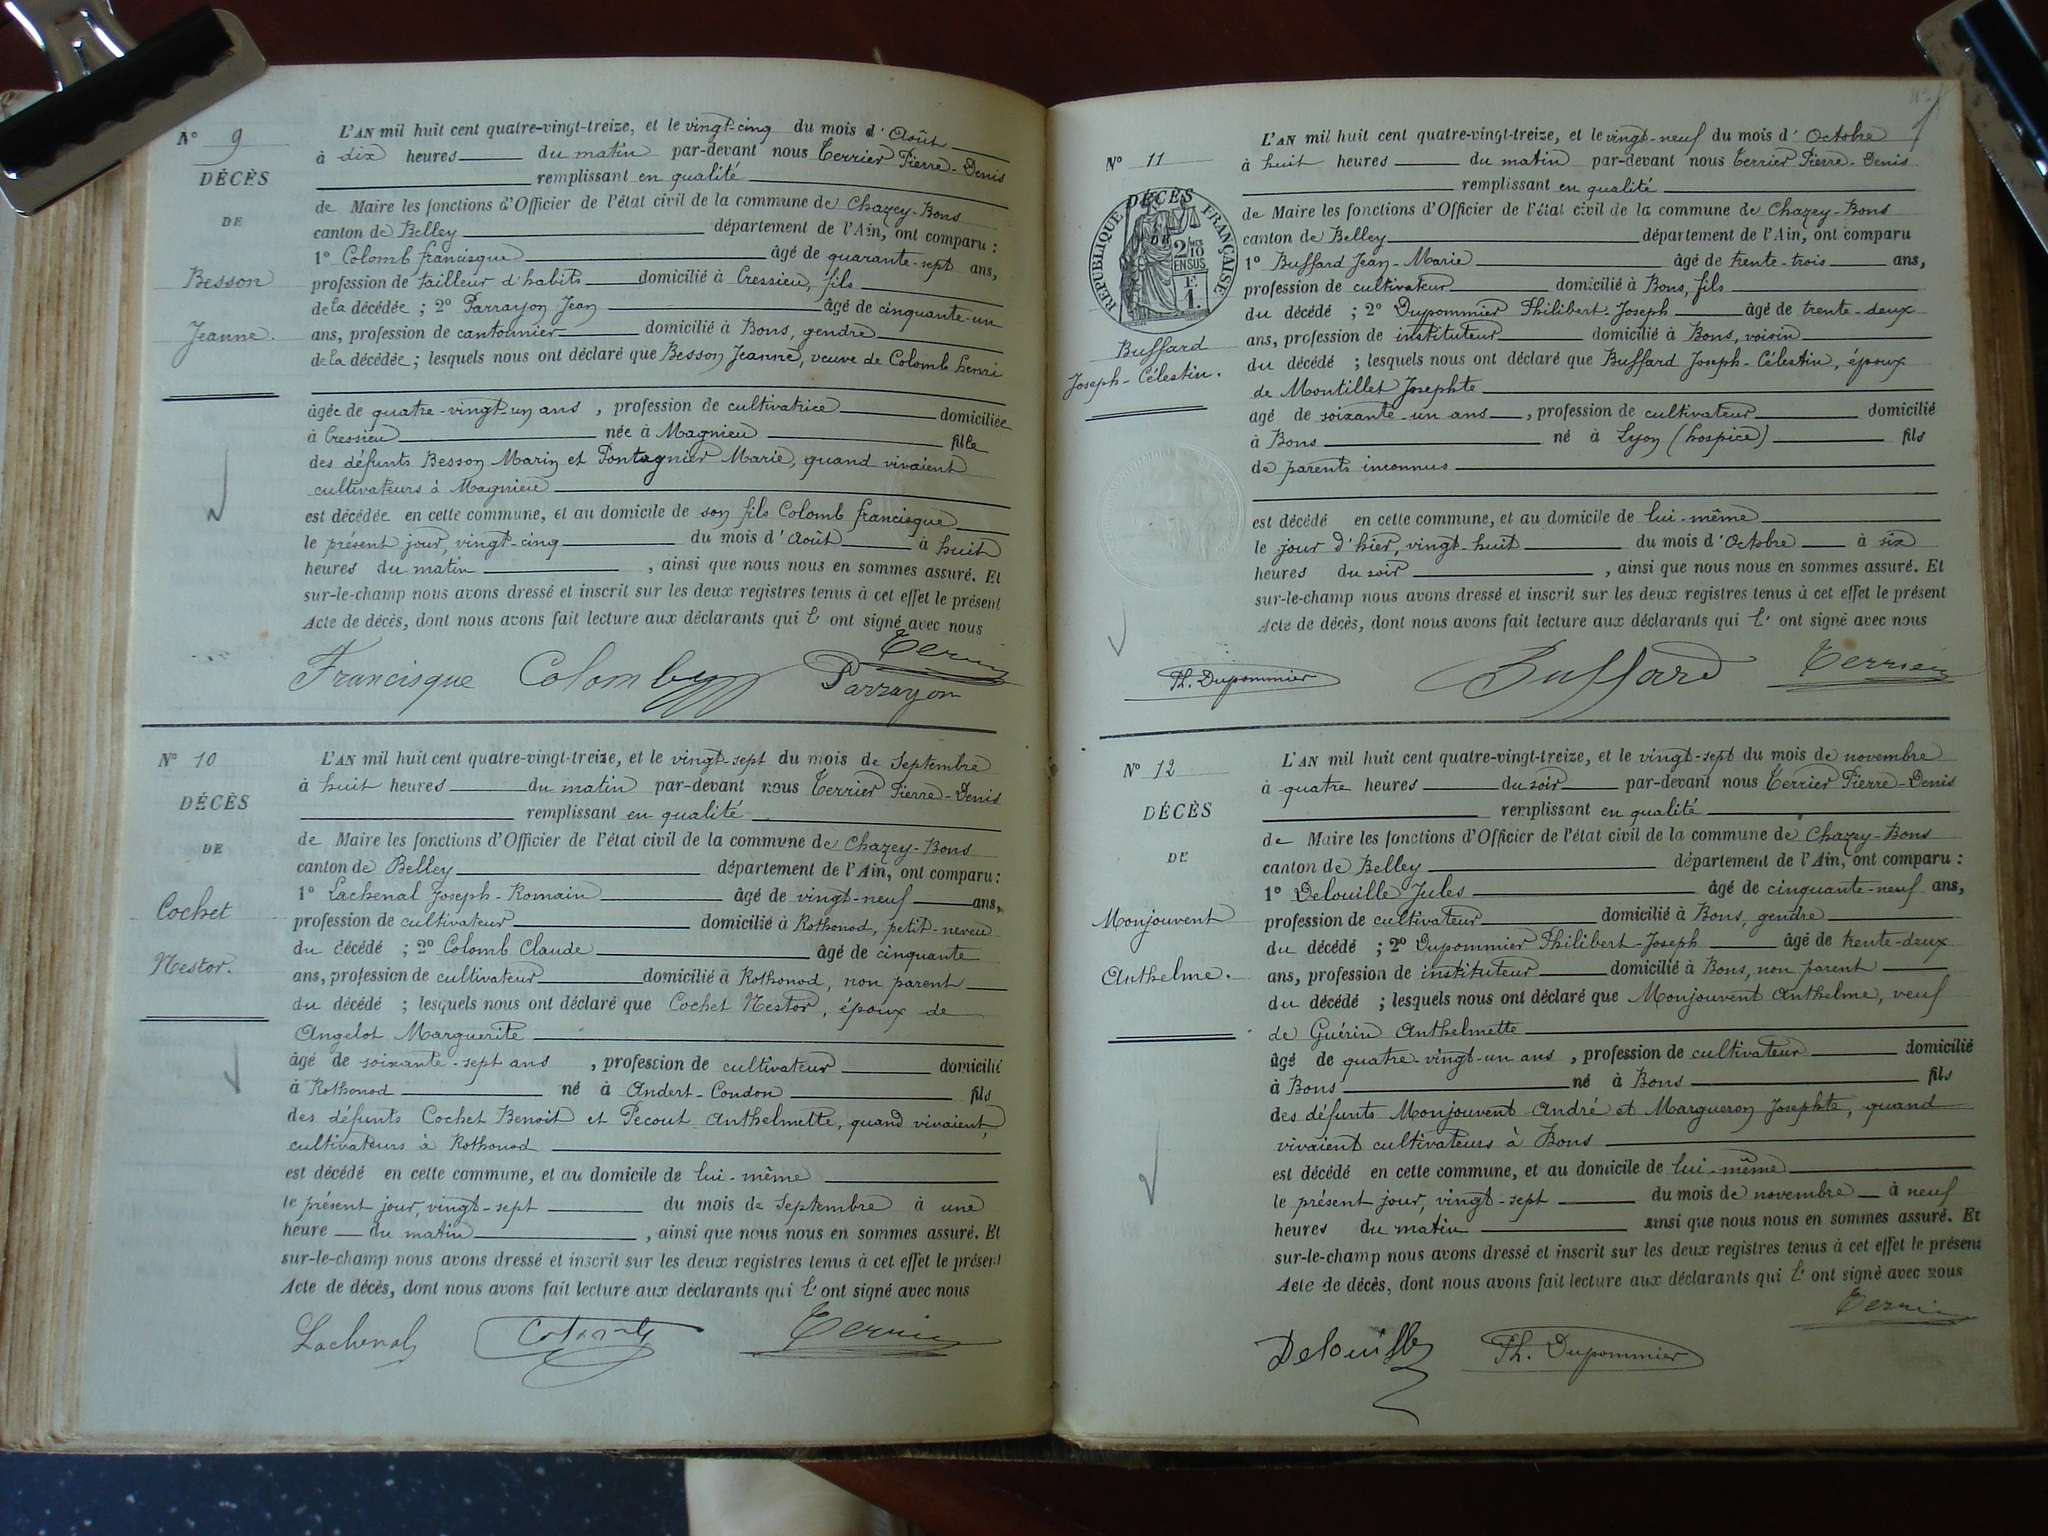 N° 9
DÉCÈS
DE
Besson
Jeanne.
L'AN mil huit cent quatre-vingt-treize, et le vingt-cinq du mois d'Août
à dix heures du matin par-devant nous Terrier Pierre-Denis
remplissant en qualité
de Maire les fonctions d'Officier de l'état civil de la commune de Chazey-Bons
canton de Belley département de l'Ain, ont comparu :
1° Colomb francisque âgé de quarante-sept ans,
profession de tailleur d'habits domicilié à Cressieu, fils
de la décédée ; 2° Parrayon Jean âgé de cinquante-un
ans, profession de cantonnier domicilié à Bons, gendre
de la décédée ; lesquels nous ont déclaré que Besson Jeanne, veuve de Colomb henri
âgée de quatre-vingt-un ans , profession de cultivatrice domiciliée
à Cressieu née à Magnieu fille
des défunts Besson Marin et Pontagnier Marie, quand vivaient
cultivateurs à Magnieu
est décédée en cette commune, et au domicile de son fils Colomb francisque
le présent jour, vingt-cinq du mois d'Août à huit
heures du matin , ainsi que nous nous en sommes assuré. Et
sur-le-champ nous avons dressé et inscrit sur les deux registres tenus à cet effet le présent
Acte de décès, dont nous avons fait lecture aux déclarants qui l' ont signé avec nous
Francisque Colomb Parrayon Terrier
N° 10
DÉCÈS
DE
Cochet
Nestor.
L'AN mil huit cent quatre-vingt-treize, et le vingt-sept du mois de Septembre
à huit heures du matin par-devant nous Terrier Pierre-Denis
remplissant en qualité
de Maire les fonctions d'Officier de l'état civil de la commune de Chazey-Bons
canton de Belley département de l'Ain, ont comparu :
1° Lachenal Joseph-Romain âgé de vingt-neuf ans,
profession de cultivateur domicilié à Rothonod, petit-neveu
du décédé ; 2° Colomb Claude âgé de cinquante
ans, profession de cultivateur domicilié à Rothonod, non parent
du décédé ; lesquels nous ont déclaré que Cochet Nestor, époux de
Angelot Marguerite
âgé de soixante-sept ans , profession de cultivateur domicilié
à Rothonod né à Andert-Condon fils
des défunts Cochet Benoit et Pecout Anthelmette, quand vivaient,
cultivateurs à Rothonod
est décédé en cette commune, et au domicile de lui-même
le présent jour, vingt-sept du mois de Septembre à une
heure du matin , ainsi que nous nous en sommes assuré. Et
sur-le-champ nous avons dressé et inscrit sur les deux registres tenus à cet effet le présent
Acte de décès, dont nous avons fait lecture aux déclarants qui l' ont signé avec nous
Lachenal Colomb Terrier
N° 11
DÉCÈS
RÉPUBLIQUE FRANÇAISE
2/10 EN SUS
F. 1.
Buffard
Joseph-Célestin.
L'AN mil huit cent quatre-vingt-treize, et le vingt-neuf du mois d'Octobre
à huit heures du matin par-devant nous Terrier Pierre-Denis
remplissant en qualité
de Maire les fonctions d'Officier de l'état civil de la commune de Chazey-Bons
canton de Belley département de l'Ain, ont comparu
1° Buffard Jean-Marie âgé de trente-trois ans,
profession de cultivateur domicilié à Bons, fils
du décédé ; 2° Dupommier Philibert-Joseph âgé de trente-deux
ans, profession de instituteur domicilié à Bons, voisin
du décédé ; lesquels nous ont déclaré que Buffard Joseph-Célestin, époux
de Montillet Josephte
agé de soixante-un ans , profession de cultivateur domicilié
à Bons né à Lyon (hospice) fils
de parents inconnus
est décédé en cette commune, et au domicile de lui-même
le jour d'hier, vingt-huit du mois d'Octobre à six
heures du soir , ainsi que nous nous en sommes assuré. Et
sur-le-champ nous avons dressé et inscrit sur les deux registres tenus à cet effet le présent
Acte de décès, dont nous avons fait lecture aux déclarants qui l' ont signé avec nous
Ph. Dupommier Buffard Terrier
N° 12
DÉCÈS
DE
Monjouvent
Anthelme.
L'AN mil huit cent quatre-vingt-treize, et le vingt-sept du mois de novembre
à quatre heures du soir par-devant nous Terrier Pierre-Denis
remplissant en qualité
de Maire les fonctions d'Officier de l'état civil de la commune de Chazey-Bons
canton de Belley département de l'Ain, ont comparu :
1° Delouille Jules âgé de cinquante-neuf ans,
profession de cultivateur domicilié à Bons, gendre
du décédé ; 2° Dupommier Philibert-Joseph âgé de trente-deux
ans, profession de instituteur domicilié à Bons, non parent
du décédé ; lesquels nous ont déclaré que Monjouvent Anthelme, veuf
de Guérin Anthelmette
âgé de quatre-vingt-un ans , profession de cultivateur domicilié
à Bons né à Bons fils
des défunts Monjouvent André et Margueron Josephte, quand
vivaient cultivateurs à Bons
est décédé en cette commune, et au domicile de lui-même
le présent jour, vingt-sept du mois de novembre à neuf
heures du matin ainsi que nous nous en sommes assuré. Et
sur-le-champ nous avons dressé et inscrit sur les deux registres tenus à cet effet le présent
Acte de décès, dont nous avons fait lecture aux déclarants qui l' ont signé avec nous
Delouille Ph. Dupommier Terrier